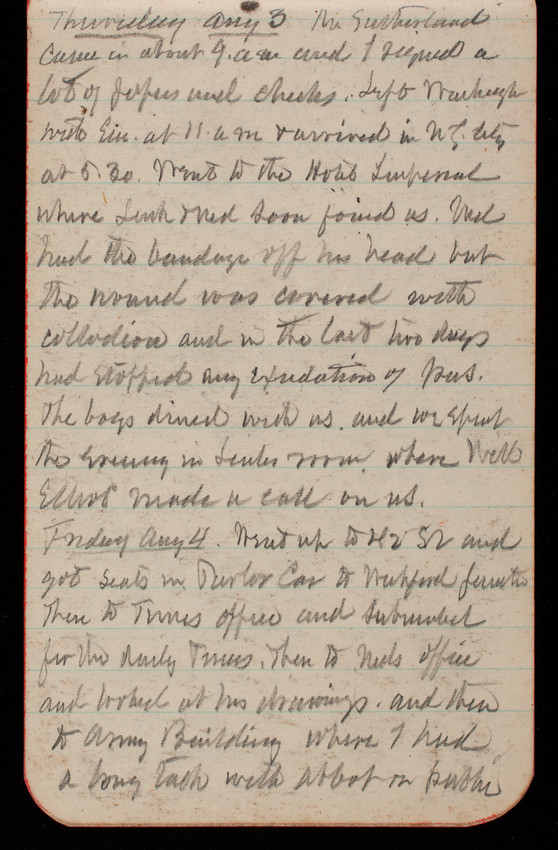 Thursday Aug 3 Mr Sutherland
came in about 9. a m and I signed a
lot of papers and checks. Left
with Em. at 11. a m & arrived in N.Y. City
at 5.30. Went to the Hotel Imperial
where Link & Ned soon joined us. Ned
had the bandage off his head but
the wound was covered with
collodion and in the last two days
had stopped any exudation of pus.
The boys dined with us. and we spent
the evening in room where
Elliot made a call on us.
Friday Aug 4. Went up to 42 St and
got seats in Parlor Car to
Then to Times office and subscribed
for the daily Times. Then to Neds office
and looked at his drawings. and then
to Army Building where I had
a long talk with Abbot on public